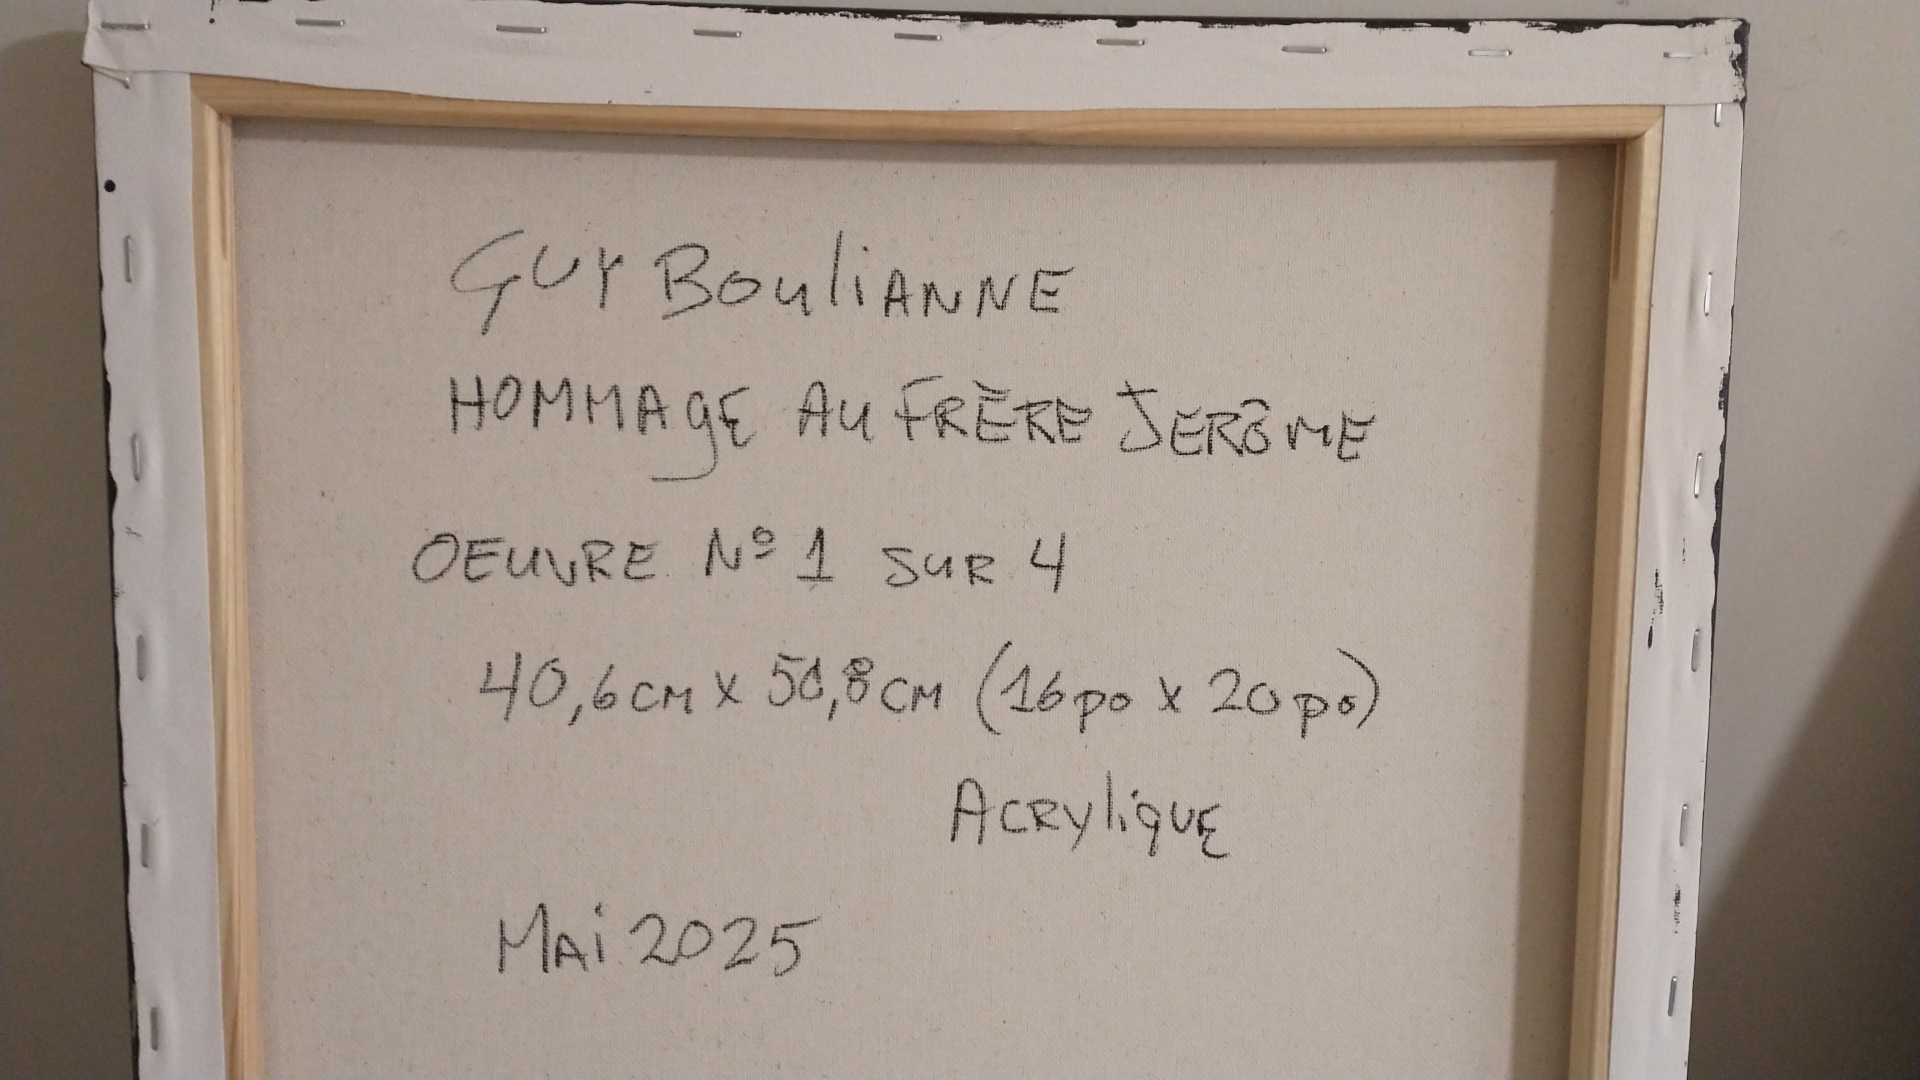 GUY BOULIANNE
HOMMAGE AU FRÈRE JERÔME
OEUVRE Nº 1 SUR 4
40,6 CM X 50,8 CM (16 po X 20 po)
ACRYLIQUE
MAI 2025